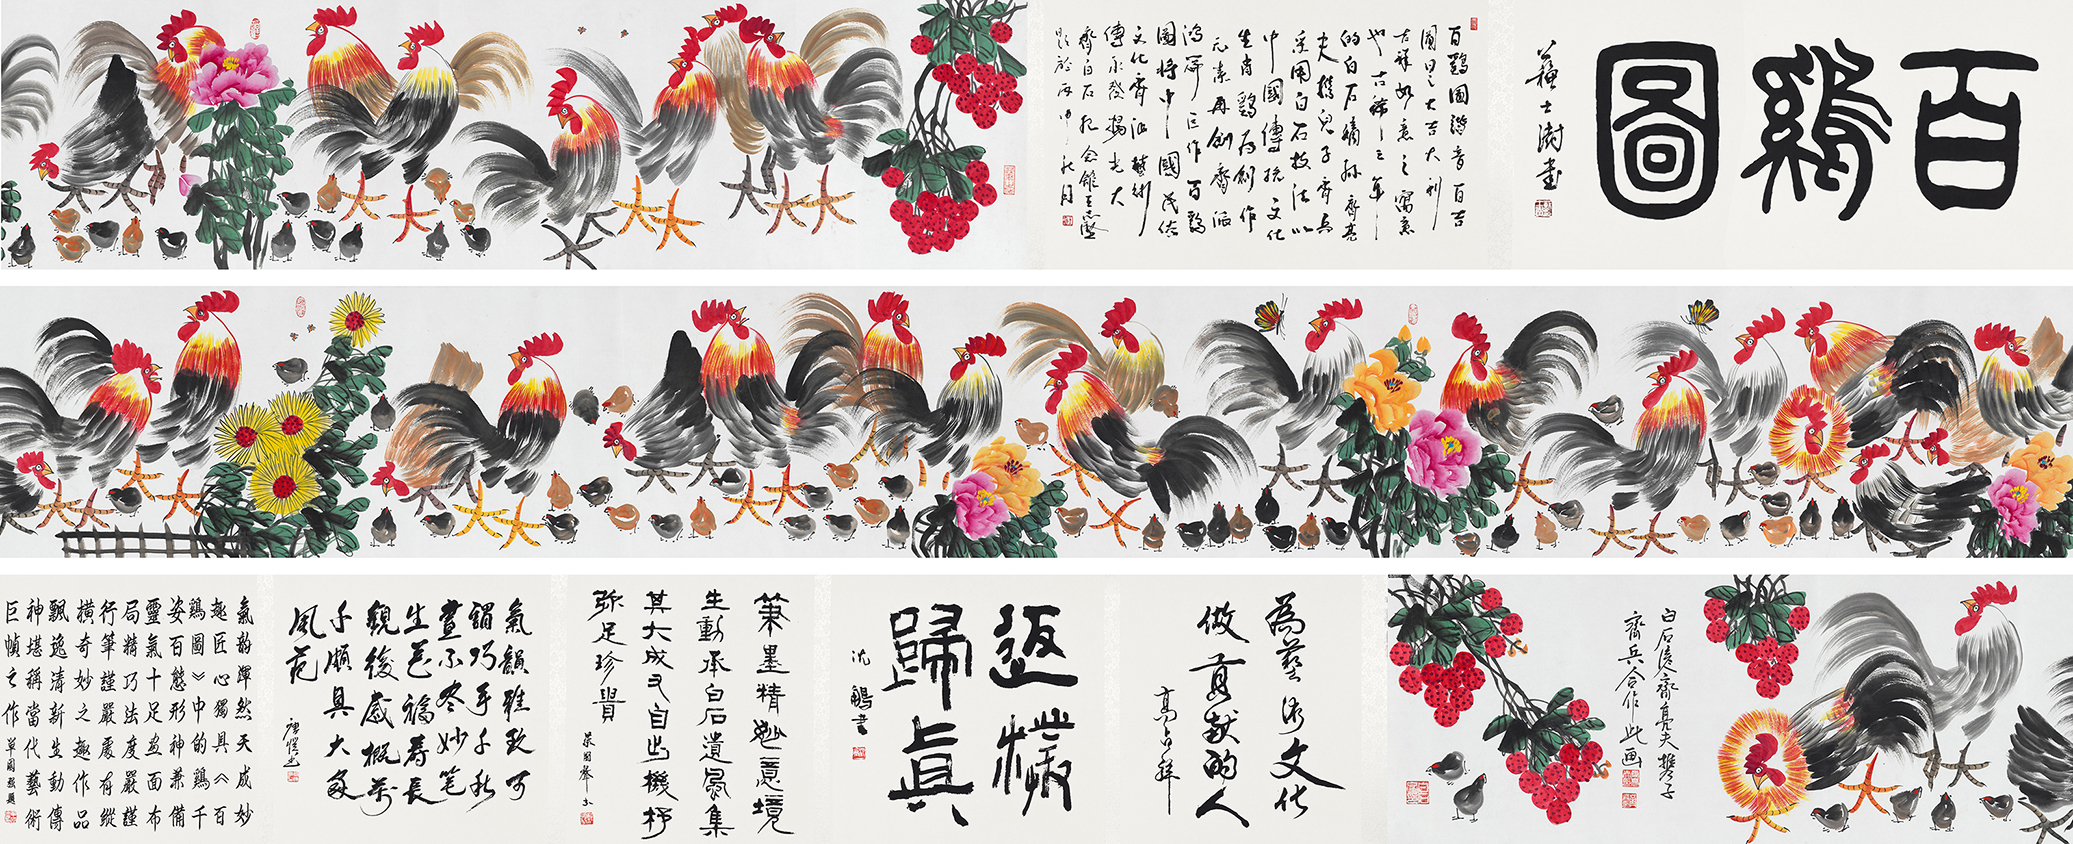 百鷄圖
蘇士澍書
百鷄圖諧音百吉
圖曰之大吉大利
吉祥如意之寓意
也古稀之年
的白石嫡孫齊亮
夫携兒子齊兵
采用白石技法以
中國傳統文化
生肖鷄为創作
元素再創齊派
鴻篇巨作百鷄
圖將中國民俗
文化齊派藝術
傳承發揚光大
齊白石紀念館王志堅
題於丙申秋月
白石後裔齊亮夫携子
齊兵合作此畫
為藝術文化
做貢獻的人
高占祥
返樸
歸真
沈鵬書
筆墨精妙意境
生動承白石遺風集
其大成又自出機杼
弥足珍貴
氣韻雅致可
謂巧手千秋
畫不盡妙筆
生花福壽長
觀後感概萬
千頗具大家
風范
氣韵渾然天成妙
趣匠心獨具《百
鷄圖》中的鷄千
姿百態形神兼備
靈氣十足畫面布
局精巧法度嚴謹
行筆謹嚴處有縱
橫奇妙之趣作品
飄逸清新生動傳
神堪稱當代藝術
巨幀之作單國强題